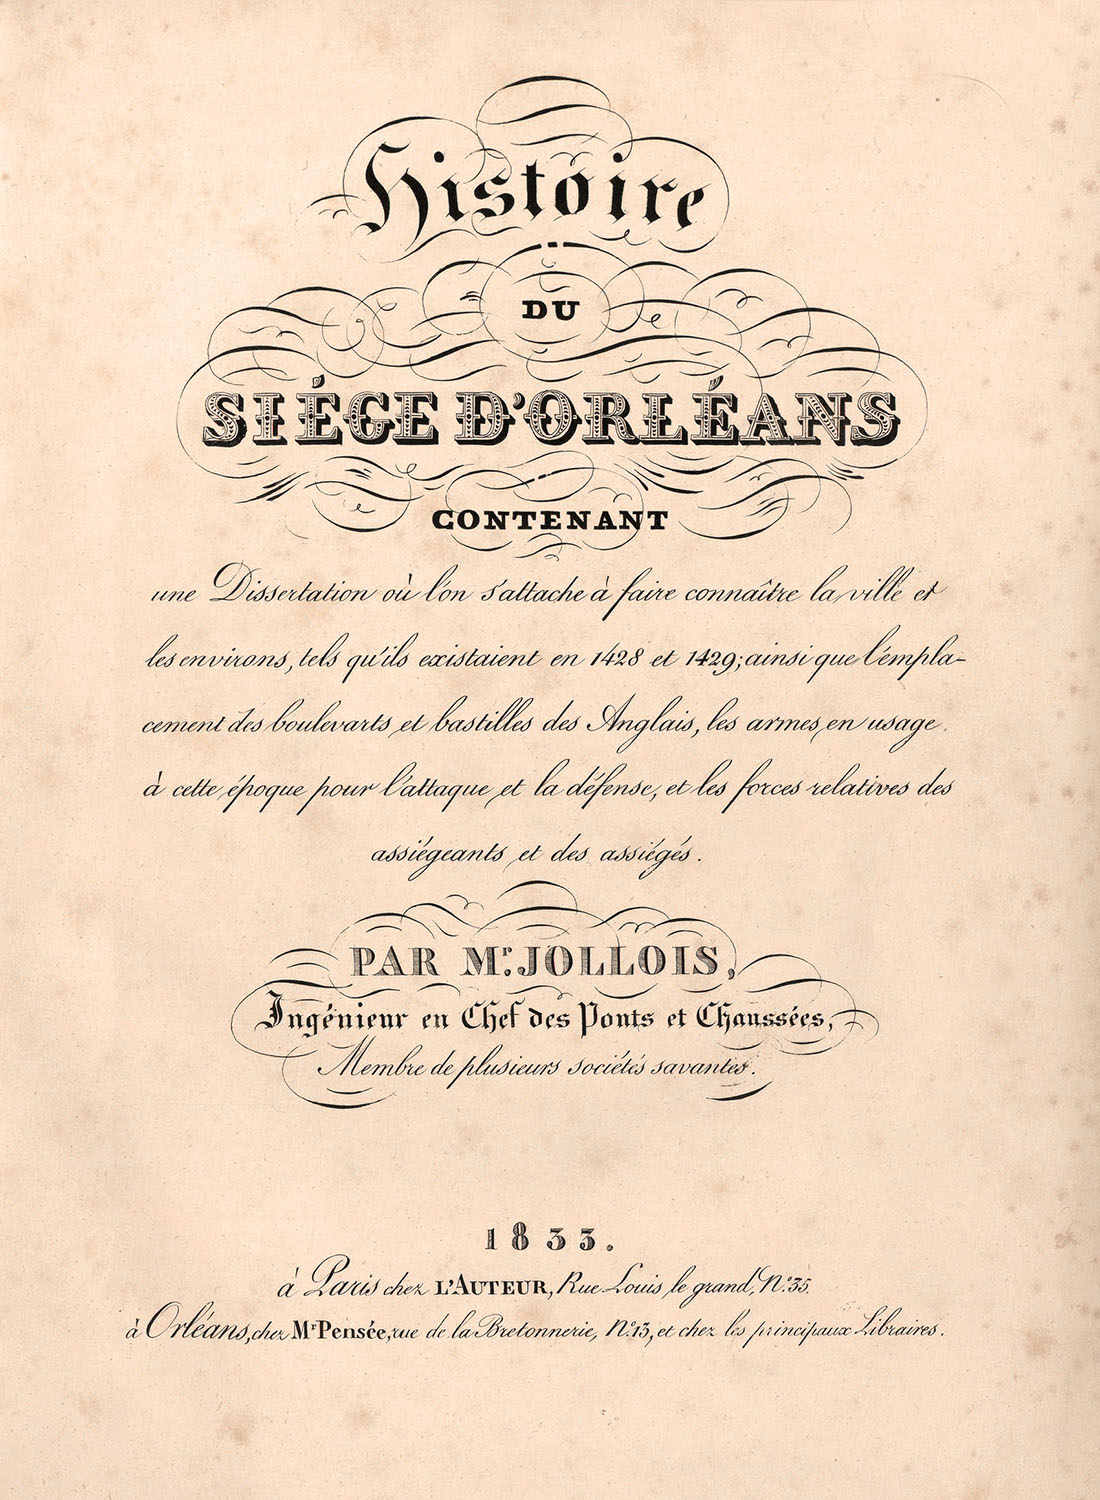 Histoire
DU
SIÉGE D'ORLÉANS
CONTENANT
une Dissertation où l'on s'attache à faire connaître la ville et
les environs, tels qu'ils existaient en 1428 et 1429; ainsi que l'empla-
cement des boulevarts et bastilles des Anglais, les armes en usage
à cette époque pour l'attaque et la défense, et les forces relatives des
assiégeants et des assiégés.
PAR Mr. JOLLOIS,
Ingénieur en Chef des Ponts et Chaussées,
Membre de plusieurs sociétés savantes.
1833.
à Paris chez L'AUTEUR, Rue Louis le grand, N.º 35.
à Orléans, chez Mr Pensée, rue de la Bretonnerie, N.º 13, et chez les principaux Libraires.